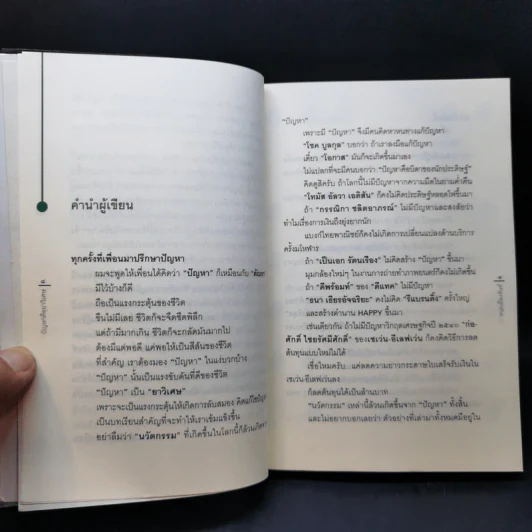 คำนำผู้เขียน
ทุกครั้งที่เพื่อนมาปรึกษาปัญหา
ผมจะพูดให้เพื่อนได้คิดว่า "ปัญหา" ก็เหมือนกับ
มีไว้บ้างก็ดี
ถือเป็นแรงกระตุ้นของชีวิต
ขืนไม่มีเลย ชีวิตก็จะจืดชืดพิลึก
แต่ถ้ามีมากเกิน ชีวิตก็จะกลัดมันมากไป
ต้องมีแต่พอดี แค่พอให้เป็นสีสันของชีวิต
ที่สำคัญ เราต้องมอง "ปัญหา" ในแง่บวกบ้าง
"ปัญหา" นั้นเป็นแรงขับดันที่ดีของชีวิต
"ปัญหา" เป็น "ยาวิเศษ"
เพราะจะเป็นแรงกระตุ้นให้เกิดการลับสมอง คิดแก้ไขปัญหา
เป็นบทเรียนสำคัญที่จะทำให้เราเข้มแข็งขึ้น
อย่าลืมว่า "นวัตกรรม" ที่เกิดขึ้นในโลกนี้ก็ล้วนเกิดจาก
"ปัญหา"
เพราะมี "ปัญหา" จึงมีคนคิดหาหนทางแก้ปัญหา
"โชค บูลกุล" บอกว่า ถ้าเราลงมือแก้ปัญหา
เดี๋ยว "โอกาส" มันก็จะเกิดขึ้นมาเอง
ไม่แปลกที่จะมีคนบอกว่า "ปัญหาคือบิดาของนักประดิษฐ์"
คิดดูสิครับ ถ้าโลกนี้ไม่มีปัญหาจากความมืดในยามค่ำคืน
"โทมัส อัลวา เอดิสัน" ก็คงไม่คิดประดิษฐ์หลอดไฟขึ้นมา
ถ้า "กรรณิกา ชลิตอาภรณ์" ไม่มีปัญหาและสงสัยว่า
ทำไมเรื่องการเงินถึงยุ่งยากนัก
แบงก์ไทยพาณิชย์ก็คงไม่เกิดการเปลี่ยนแปลงด้านบริการ
ครั้งมโหฬาร
ถ้า "เป็นเอก รัตนเรือง" ไม่คิดสร้าง "ปัญหา" ขึ้นมา
มุมกล้องใหม่ๆ ในงานการถ่ายทำภาพยนตร์ก็คงไม่เกิดขึ้น
ถ้า "ดีพร้อมท์" ของ "ดีแทค" ไม่มีปัญหา
"ธนา เธียรอัจฉริยะ" คงไม่คิด "รีแบรนดิ้ง" ครั้งใหญ่
และสร้างตำนาน HAPPY ขึ้นมา
เช่นเดียวกัน ถ้าไม่มีปัญหาวิกฤตเศรษฐกิจปี ๒๕๔๐ "ก่อ-
ศักดิ์ ไชยรัศมีศักดิ์" ของเซเว่น-อีเลฟเว่น ก็คงคิดวิธีการลด
ต้นทุนแบบใหม่ไม่ได้
เชื่อไหมครับ แค่ลดความยาวกระดาษใบเสร็จรับเงินใน
เซเว่น-อีเลฟเว่นลง
ก็ลดต้นทุนได้เป็นล้านบาท
"นวัตกรรม" เหล่านี้ล้วนเกิดขึ้นจาก "ปัญหา" ทั้งสิ้น
และไม่อยากบอกเลยว่า ตัวอย่างที่เล่ามาทั้งหมดมีอยู่ใน